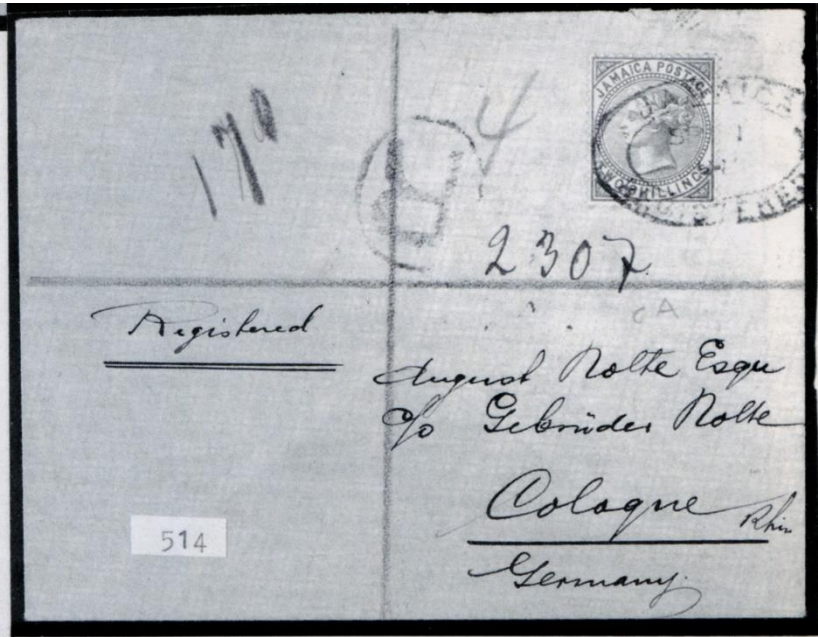 JAMAICA POSTAGE
TWO SHILLINGS
17
R
4
2307
CA
Registered
August Nolte Esqu
c/o Gebrüder Nolte
Cologne
Germany.
514